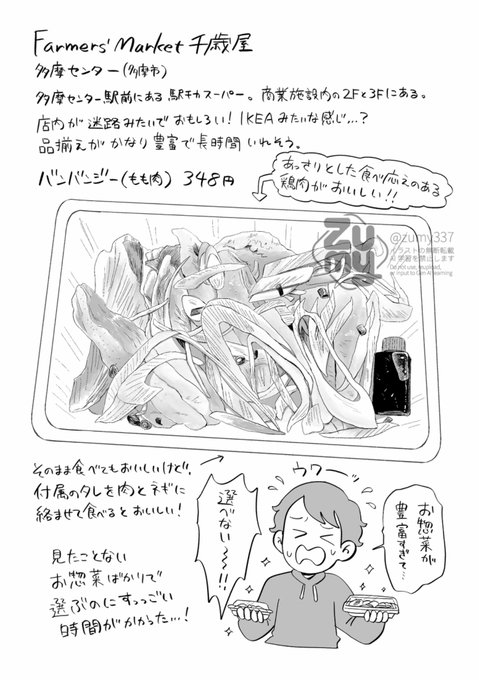 Farmers' Market 千歳屋
多摩センター(多摩市)
多摩センター駅前にある駅チカスーパー。商業施設内の2Fと3Fにある。
店内が迷路みたいでおもしろい!IKEAみたいな感じ…?
品揃えがかなり豊富で長時間いれそう。
バンバンジー(もも肉) 348円
あっさりとした食べ応えのある
鶏肉がおいしい!!
zumy
@zumy337
イラストの無断転載
AI学習を禁止します
Do not use, reupload,
or input to Gen AI learning
そのまま食べてもおいしいけど、
付属のタレを肉とネギに
絡ませて食べるとおいしい!
見たことない
お惣菜ばかりで
選ぶのにすっっごい
時間がかかった…!
ウワーッ
お惣菜が
豊富すぎて…
選べない〜〜!!